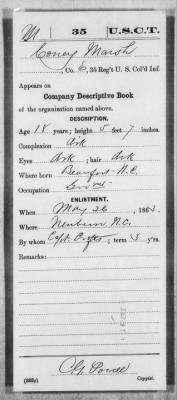 M 35 U.S.C.T.
Coney Marsh
, Co. E, 35 Reg't U. S. Col'd Inf.
Appears on
Company Descriptive Book
of the organization named above.
DESCRIPTION.
Age 18 years; height 5 feet 7 inches.
Complexion Drk
Eyes Drk ; hair Drk
Where born Beaufort N.C.
Occupation
ENLISTMENT.
When May 26, 1863.
Where Newbern, N.C.
By whom Capt. ; term 3 y'rs.
Remarks:
C. G. Powell
(383g) Copyist.